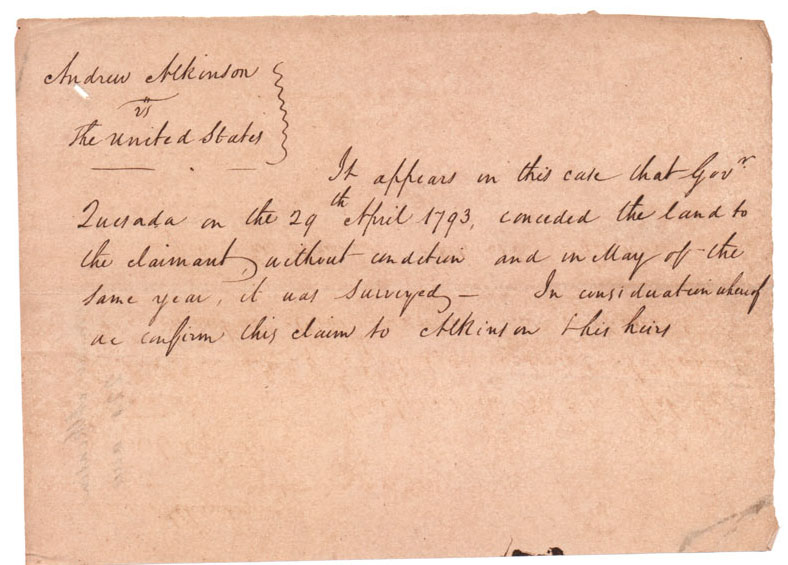 Andrew Atkinson
vs
The United States
It appears in this case that Govr.
Quesada on the 29th April 1793, conceded the land to
the claimant, without condition and in May of the
same year, it was surveyed — In consideration whereof
we confirm this claim to Atkinson & his heirs